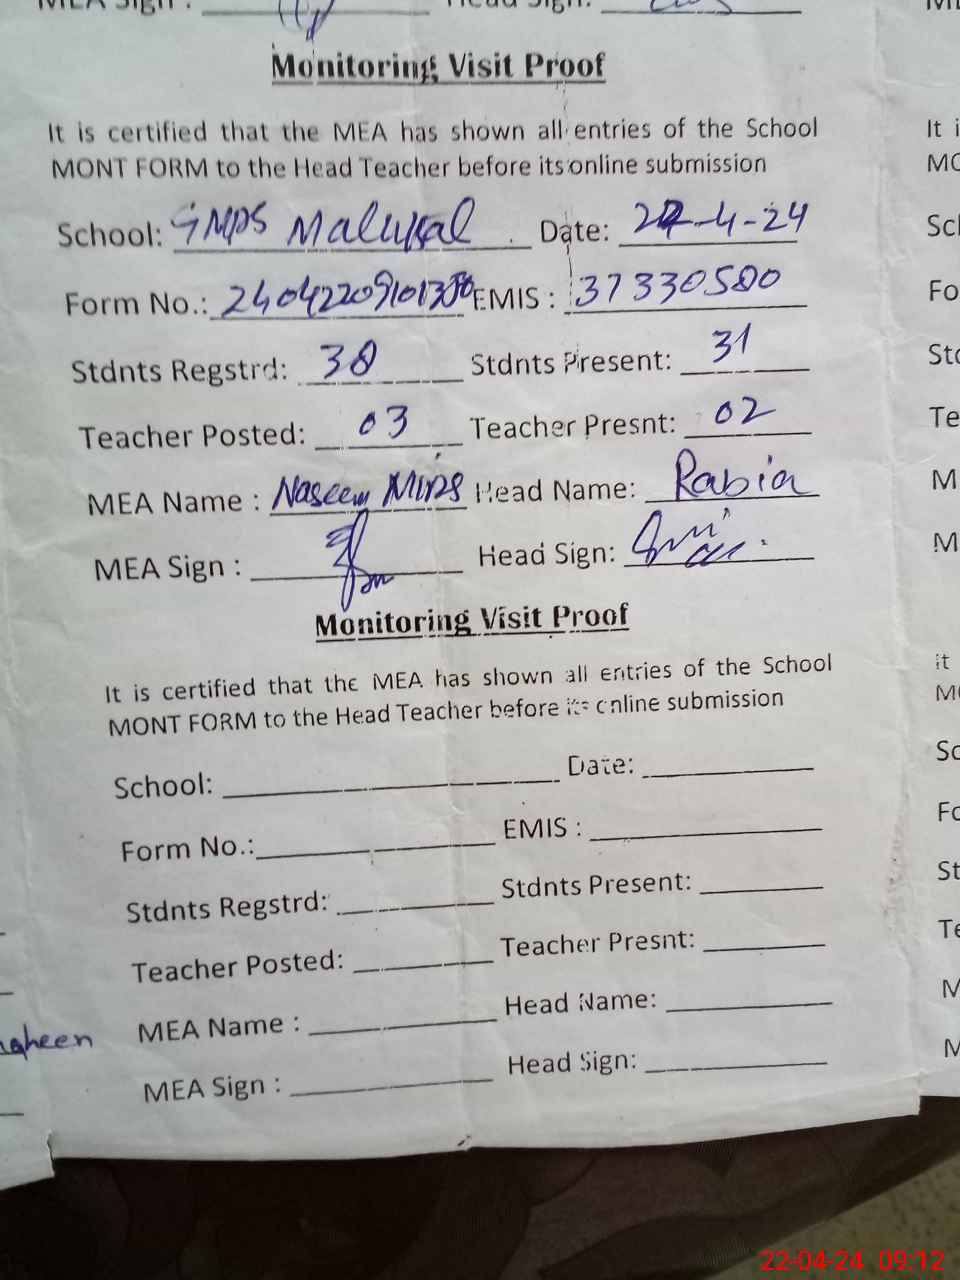 MEA Sign : Head Sign:
Monitoring Visit Proof
It is certified that the MEA has shown all entries of the School
MONT FORM to the Head Teacher before its online submission
School: GMPS Malukal Date: 22-4-24
Form No.: EMIS : 37330500
Stdnts Regstrd: 38 Stdnts Present: 31
Teacher Posted: 03 Teacher Presnt: 02
MEA Name : Naseem Head Name: Rabia
MEA Sign : Head Sign:
Monitoring Visit Proof
It is certified that the MEA has shown all entries of the School
MONT FORM to the Head Teacher before its online submission
School: Date:
Form No.: EMIS :
Stdnts Regstrd: Stdnts Present:
Teacher Posted: Teacher Presnt:
MEA Name : Head Name:
MEA Sign : Head Sign:
22-04-24 09:12